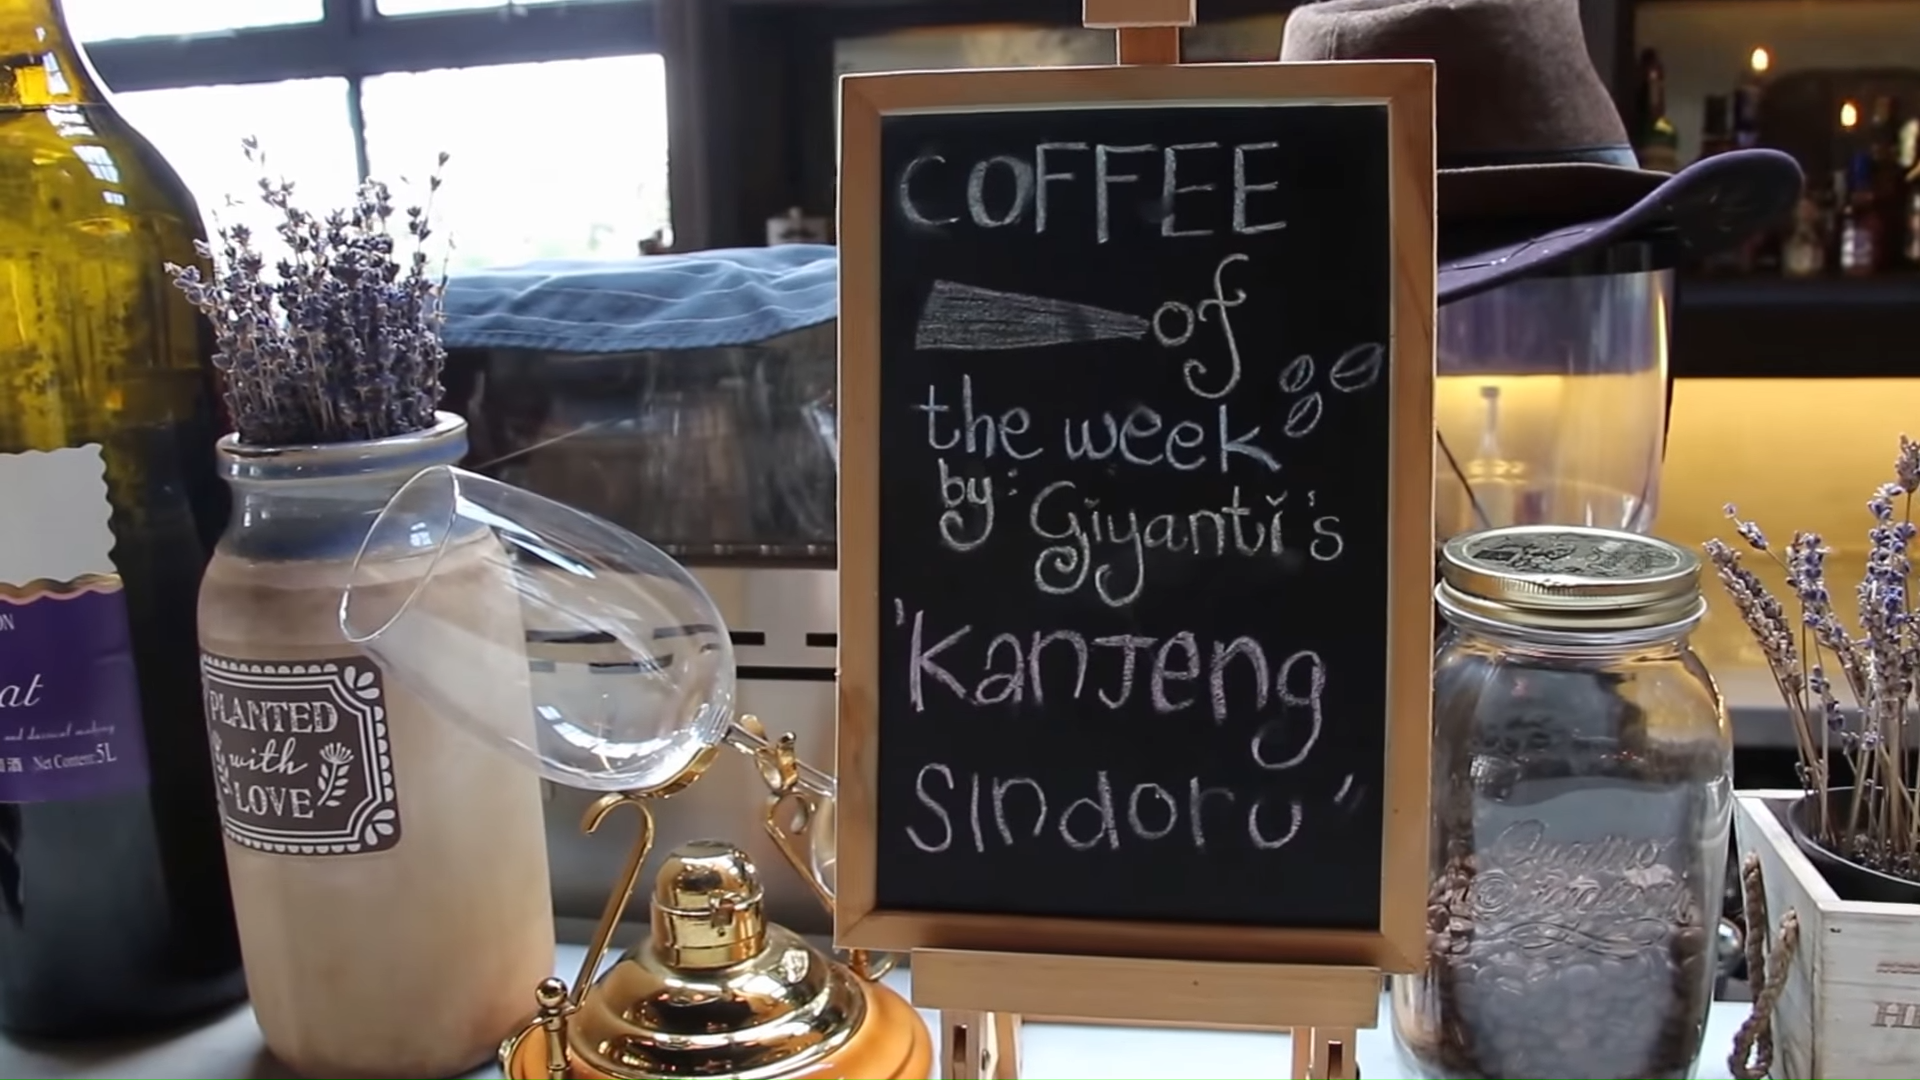 COFFEE
of
the week
by: Giyanti's
'Kanjeng
Sindoro"
PLANTED
with
LOVE
at
Net Content:5L